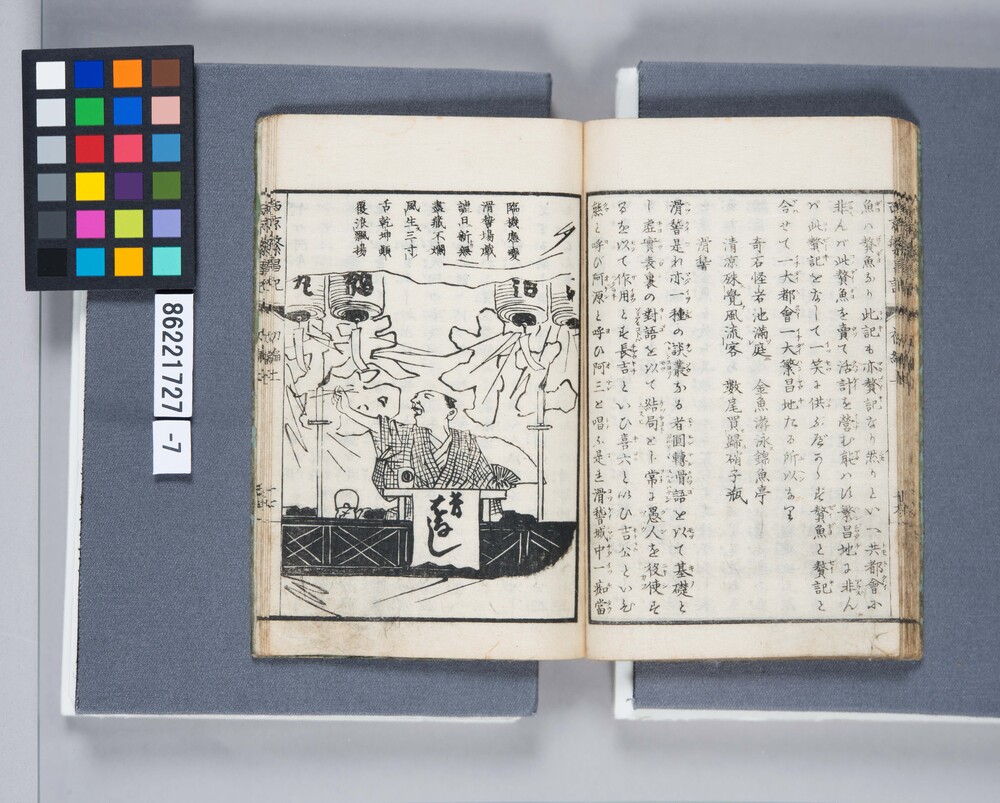 魚ハ贅魚なり此記も亦贅記なり然りといへ共都會に
非んバ此贅魚を賣て活計を營む能ハず繁昌地に非ん
バ此贅記を
して一笑に供
贅魚と贅記と
合せて一大都會一大繁昌地たる所以なり
奇石怪岩池滿庭 金魚游泳錦魚亭
清凉殊覺風流客 數尾買歸硝子瓶
滑稽
滑稽是れ亦一種の談叢なる者圓轉滑語を以て基礎と
し虚實表裏の對語を以て結局とし常に愚人を役使す
るを以て作用とす長吉といひ喜六といひ吉公といひ
熊と呼び阿源と呼ひ阿三と唱ふ是を滑稽城中一
當
臨機應變
滑稽場戯
謔日新無
盡藏不爛
風生三寸
舌乾坤顛
覆浪飄揚
昔はなし
86221727
-7